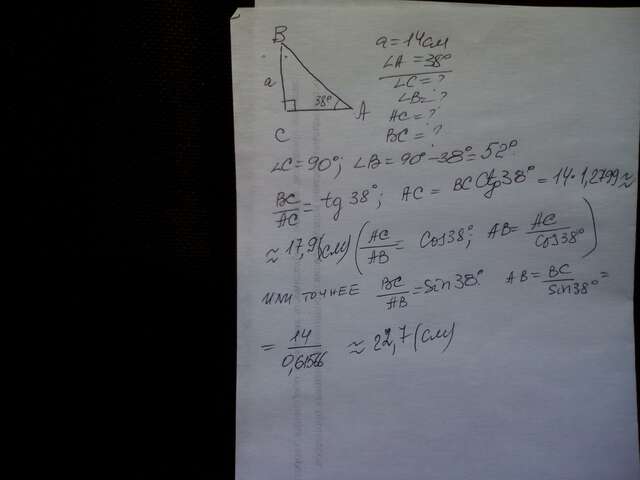 B
a = 14 см
∠A = 38°
∠C = ?
∠B = ?
AC = ?
BC = ?
a
38°
A
C
∠C = 90°; ∠B = 90° - 38° = 52°
BC/AC = tg 38°; AC = BC Ctg 38° = 14 · 1,2799 ≈
≈ 17,9 (см) (AC/AB = Cos 38°; AB = AC/Cos 38°)
или точнее BC/AB = Sin 38° AB = BC/Sin 38° =
= 14/0,61566 ≈ 22,7 (см)